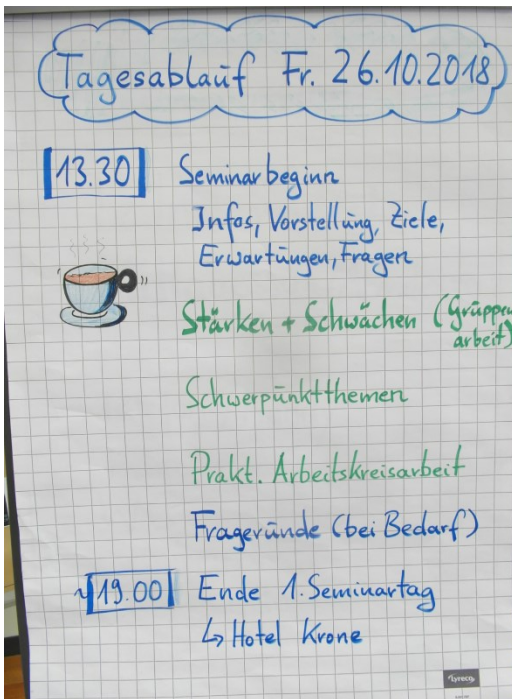 Tagesablauf Fr. 26.10.2018
13.30 Seminarbeginn
Infos, Vorstellung, Ziele,
Erwartungen, Fragen
Stärken + Schwächen (Gruppen
arbeit)
Schwerpunktthemen
Prakt. Arbeitskreisarbeit
Fragerunde (bei Bedarf)
~19.00 Ende 1. Seminartag
↳ Hotel Krone
lyreco